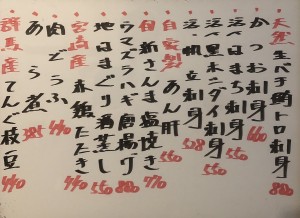 天然生ベチ鮪トロ刺身 880
かつお刺身 660
活〆はまち刺身 550
活〆黒ホニダイ刺身 550
活〆帆立刺身 528
自家製 あん肝 550
個 新さんま塩焼き 770
ウマズラハギ唐揚げ 880
地はまぐり酒蒸し 550
宮崎産 赤鶏たたき 440
肉どうふ 440
あら煮
群馬産てんぐ枝豆 440